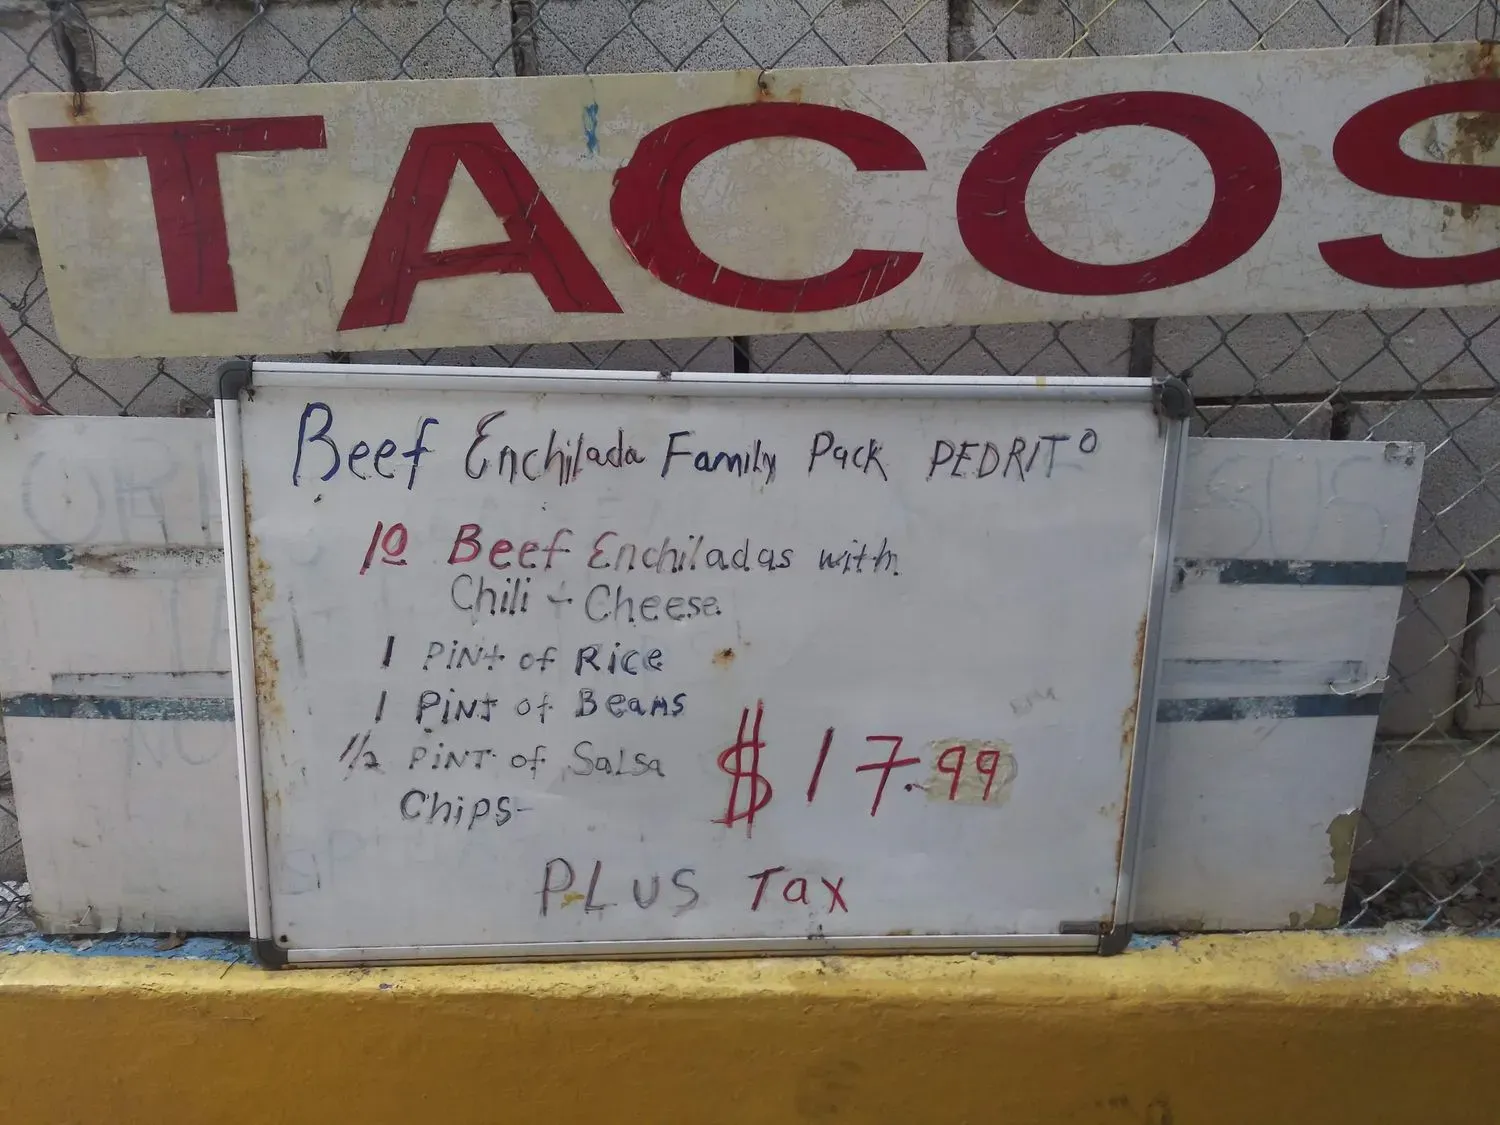 TACOS
Beef Enchilada Family Pack PEDRITO
10 Beef Enchiladas with
Chili + Cheese
1 PiNt of Rice
1 PiNt of Beans
1/2 PiNT of Salsa
Chips-
$17.99
PLUS Tax